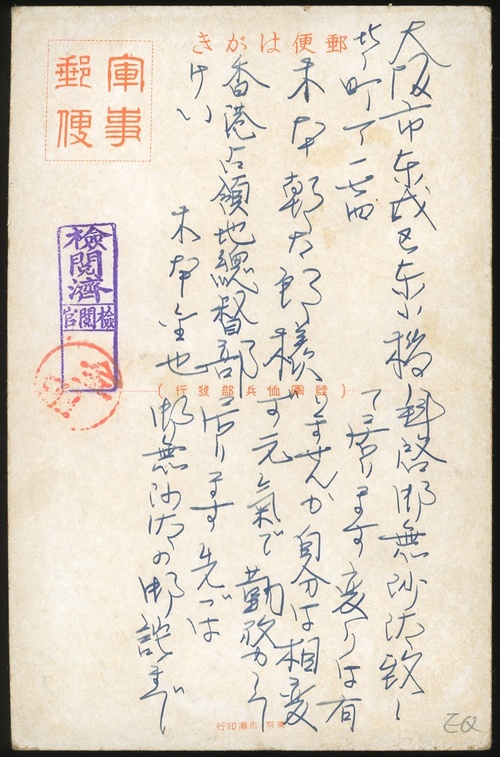 郵便はがき
軍事
郵便
大阪市东成区东小橋
北之町
一七四
木村朝太郎様
香港占領地總督部
木村金也
拜啓御無沙汰致し
て居ります変りは有
りませんか自分は相変
らず元氣で勤務して
居ります先づは
御無沙汰の御詫まで
檢閱濟
檢閱官
(陸軍恤兵部發行)
東京 市瀨印行